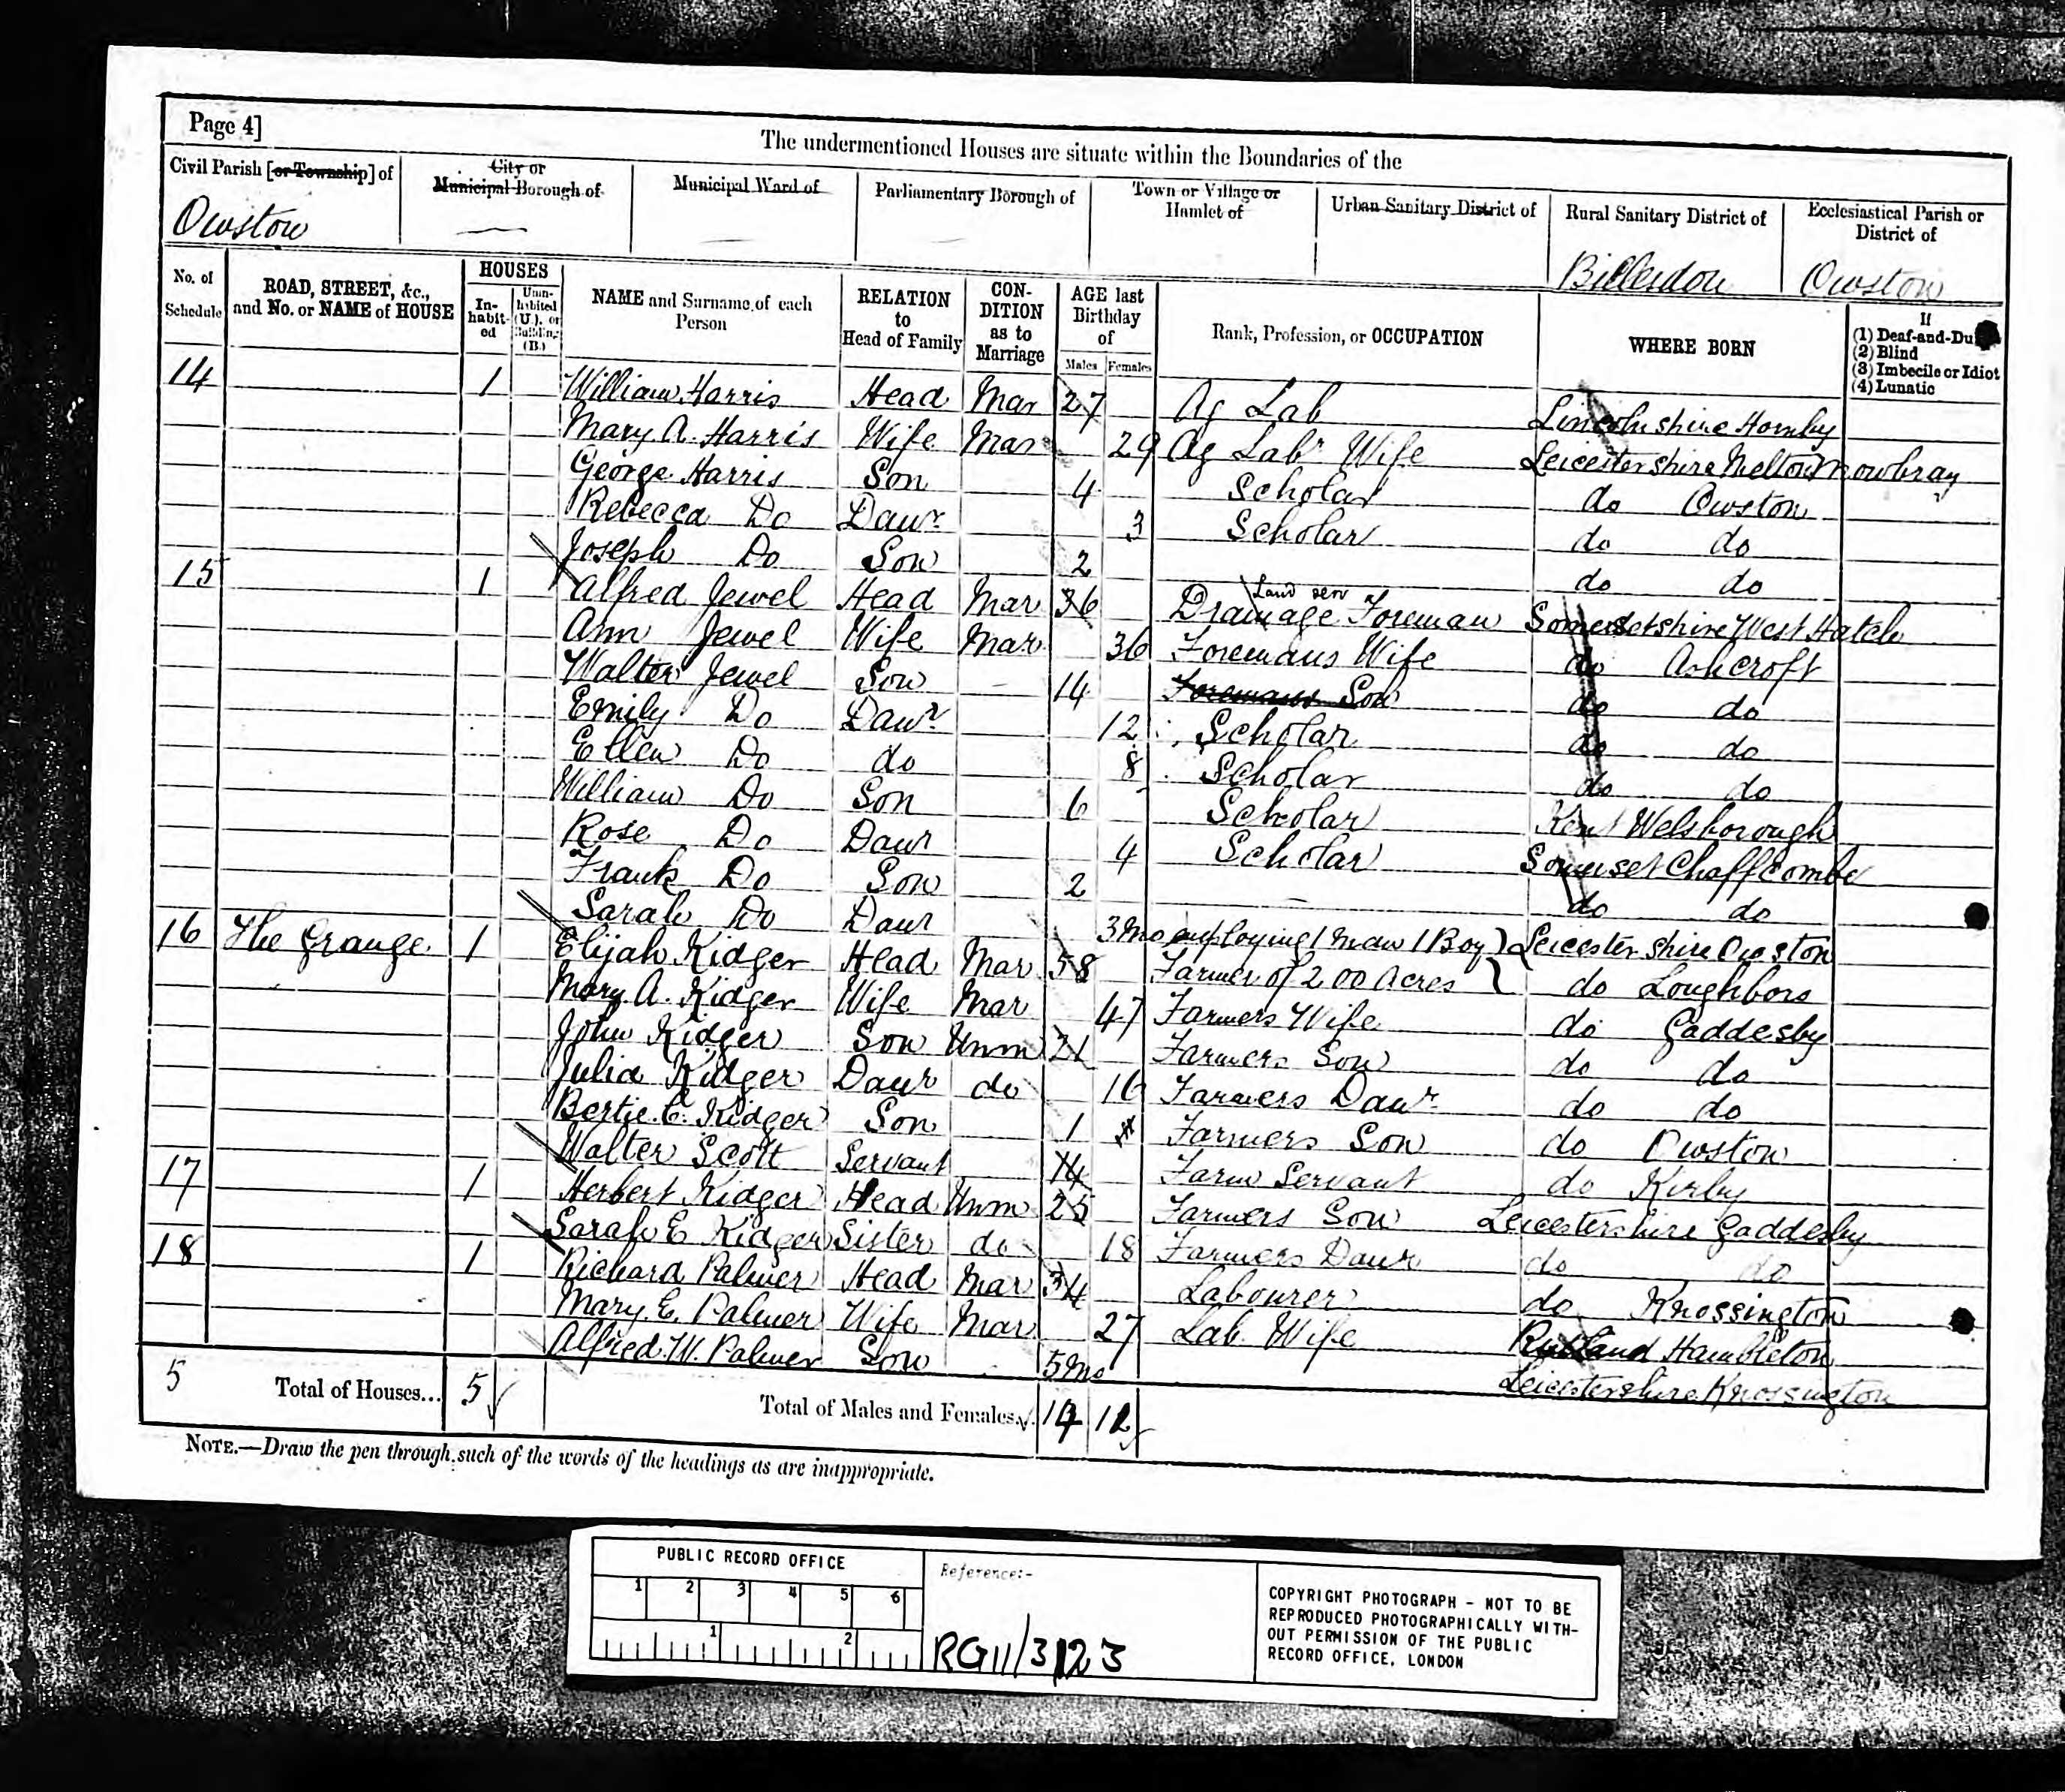 Page 4]
The undermentioned Houses are situate within the Boundaries of the
Civil Parish [or Township] of
City or Municipal Borough of
Municipal Ward of
Parliamentary Borough of
Town or Village or Hamlet of
Urban Sanitary District of
Rural Sanitary District of
Ecclesiastical Parish or District of
Owston
Billesdon
Owston
No. of Schedule
ROAD, STREET, &c., and No. or NAME of HOUSE
HOUSES
In-habit-ed
Unin-habited (U.), or Building (B.)
NAME and Surname of each Person
RELATION to Head of Family
CON-DITION as to Marriage
AGE last Birthday of
Males Females
Rank, Profession, or OCCUPATION
WHERE BORN
If
(1) Deaf-and-Du
(2) Blind
(3) Imbecile or Idiot
(4) Lunatic
14 1 William Harris Head Mar 27 Ag Lab Lincolnshire Hornby
Mary A. Harris Wife Mar 29 Ag Labr Wife Leicestershire Melton Mowbray
George Harris Son 4 Scholar do Owston
Rebecca Do Daur 3 Scholar do do
Joseph Do Son 2 do do
15 1 Alfred Jewel Head Mar 36 Drainage Foreman Somersetshire West Hatch
Ann Jewel Wife Mar 36 Foremans Wife do Ashcroft
Walter Jewel Son 14 Foremans Son do do
Emily Do Daur 12 Scholar do do
Ellen Do do 8 Scholar do do
William Do Son 6 Scholar Kent Welsborough
Rose Do Daur 4 Scholar Somerset Chaffcombe
Frank Do Son 2 do do
Sarah Do Daur 3mo Leicestershire Owston
16 The Grange 1 Elijah Kidger Head Mar 58 employing 1 man 1 Boy Farmer of 200 Acres do Loughboro
Mary A. Kidger Wife Mar 47 Farmers Wife do Gaddesby
John Kidger Son Unm 21 Farmers Son do do
Julia Kidger Daur do 16 Farmers Daur do do
Bertie C. Kidger Son 1 Farmers Son do Owston
Walter Scott Servant 14 Farm Servant do Kirby
17 1 Herbert Kidger Head Unm 25 Farmers Son Leicestershire Gaddesby
Sarah E Kidger Sister do 18 Farmers Daur do do
18 1 Richard Palmer Head Mar 34 Labourer do Knossington
Mary E. Palmer Wife Mar 27 Lab. Wife Rutland Hambleton
Alfred W. Palmer Son 5mo Leicestershire Knossington
5 Total of Houses... 5 Total of Males and Females.. 14 12
NOTE.—Draw the pen through such of the words of the headings as are inappropriate.
PUBLIC RECORD OFFICE
1 2 3 4 5 6
1 2
Reference:-
RG11/3123
COPYRIGHT PHOTOGRAPH - NOT TO BE
REPRODUCED PHOTOGRAPHICALLY WITH-
OUT PERMISSION OF THE PUBLIC
RECORD OFFICE, LONDON